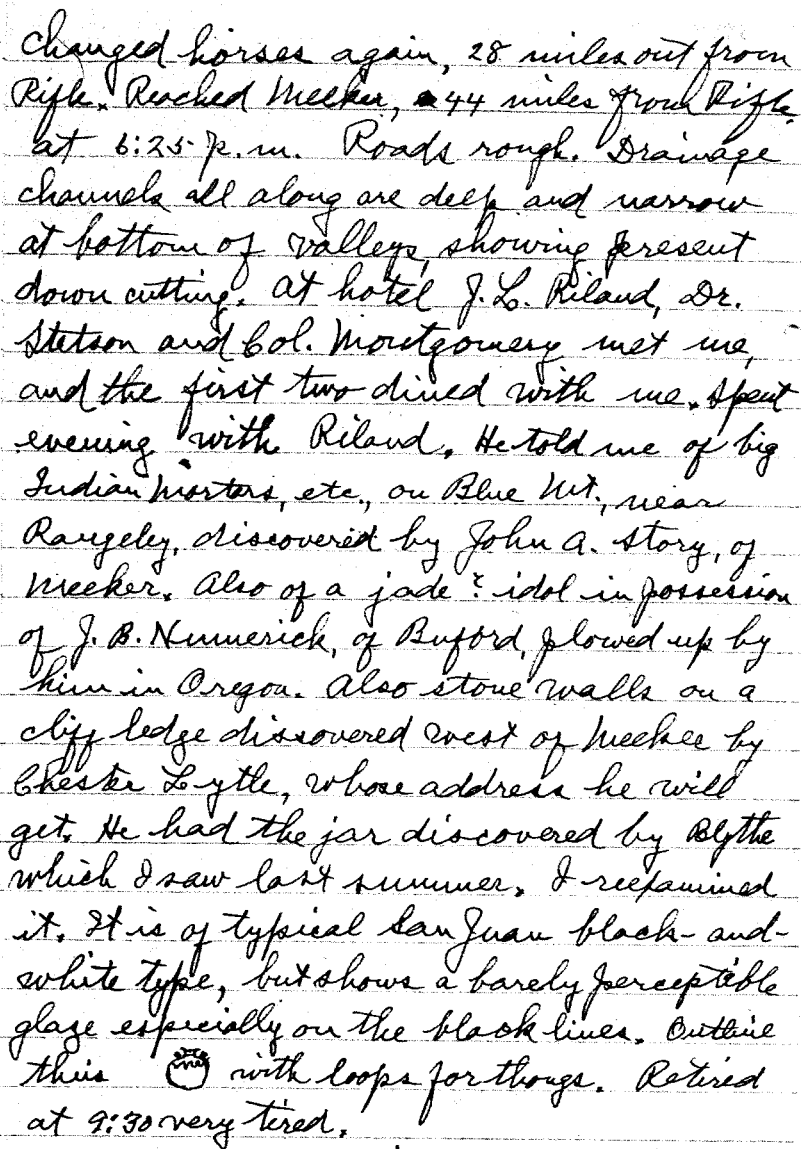 changed horses again, 28 miles out from
Rifle. Reached Meeker, 44 miles from Rifle,
at 6:25 p.m. Roads rough. Drainage
channels all along are deep and narrow
at bottom of valleys, showing present
down cutting. At hotel J. L. Riland, Dr.
Stetson and Col. Montgomery met me,
and the first two dined with me. Spent
evening with Riland. He told me of big
Indian mortars, etc., on Blue Mt., near
Rangeley, discovered by John A. Story, of
Meeker. Also of a jade ? idol in possession
of J. B. Nimerick, of Buford, plowed up by
him in Oregon. Also stone walls on a
cliff ledge discovered west of Meeker by
Chester Lytle, whose address he will
get. He had the jar discovered by Blythe
which I saw last summer. I reexamined
it. It is of typical San Juan black-and-
white type, but shows a barely perceptible
glaze especially on the black lines. Outline
thus with loops for thongs. Retired
at 9:30 very tired.